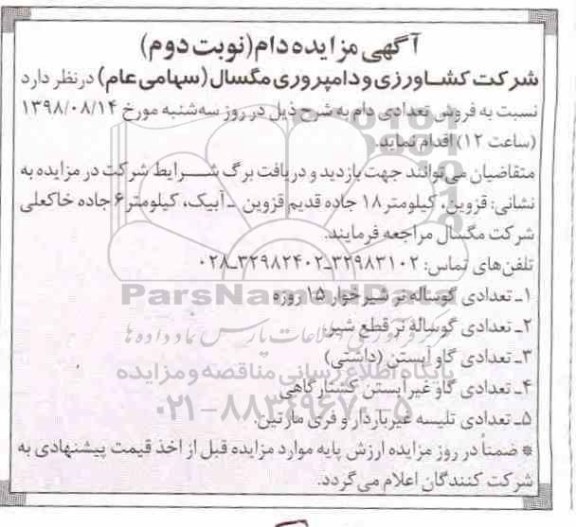 آگهی مزایده دام (نوبت دوم)
شرکت کشاورزی و دامپروری مگسال (سهامی عام) در نظر دارد
نسبت به فروش تعدادی دام به شرح ذیل در روز سه‌شنبه مورخ ۱۳۹۸/۰۸/۱۴
(ساعت ۱۲) اقدام نماید.
متقاضیان می‌توانند جهت بازدید و دریافت برگ شرایط شرکت در مزایده به
نشانی: قزوین، کیلومتر ۱۸ جاده قدیم قزوین ـ آبیک، کیلومتر ۶ جاده خاکعلی
شرکت مگسال مراجعه فرمایند.
تلفن‌های تماس: ۳۲۹۸۲۱۰۲ـ۳۲۹۸۲۴۰۲ـ۰۲۸
ParsNamadData
۱ـ تعدادی گوساله نر شیرخوار ۱۵ روزه
مرکز فرآوری اطلاعات پارس نماد داده‌ها
۲ـ تعدادی گوسالهٔ نر قطع شیر.
۳ـ تعدادی گاو آبستن (داشتی)
پایگاه اطلاع رسانی مناقصه و مزایده
۴ـ تعدادی گاو غیرآبستن کشتارگاهی
۰۲۱-۸۸۳۴۹۶۷۰-۵
۵ـ تعدادی تلیسه غیرباردار و فری مارتین.
* ضمناً در روز مزایده ارزش پایه موارد مزایده قبل از اخذ قیمت پیشنهادی به
شرکت کنندگان اعلام می‌گردد.